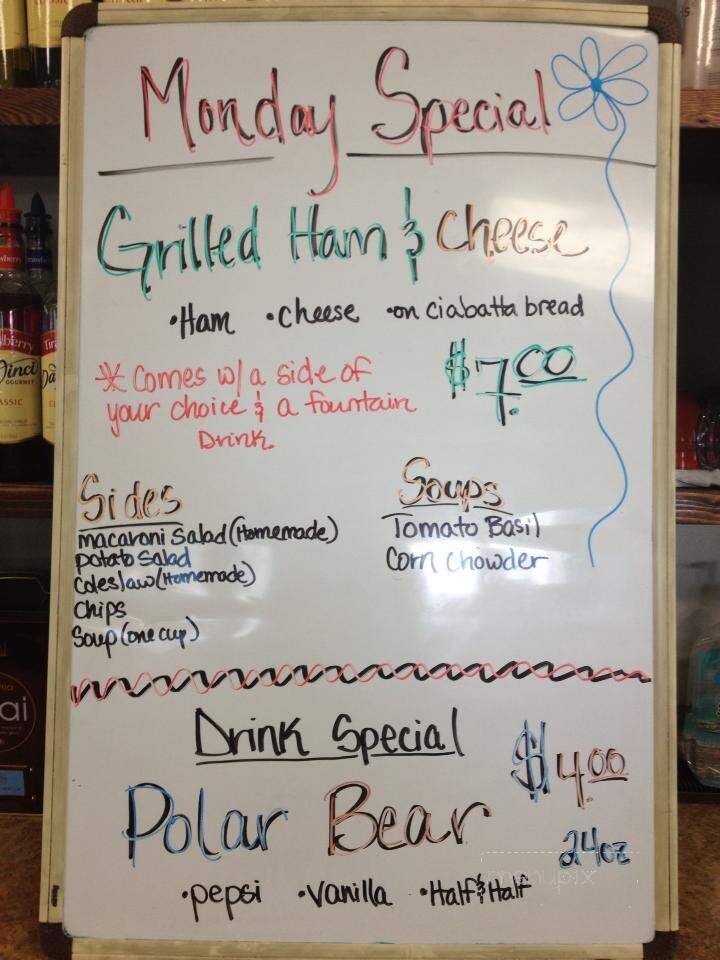 Monday Special
Grilled Ham & Cheese
•Ham •cheese •on ciabatta bread
* Comes w/ a side of
your choice & a fountain
Drink
$7.00
Sides
macaroni Salad (Homemade)
potato Salad
Coleslaw (Homemade)
Chips
Soup (one cup)
Soups
Tomato Basil
Corn Chowder
Drink Special
$4.00
Polar Bear
24oz
•pepsi •vanilla •Half & Half
menupix
Vinci
GOURMET
ASSIC
ai